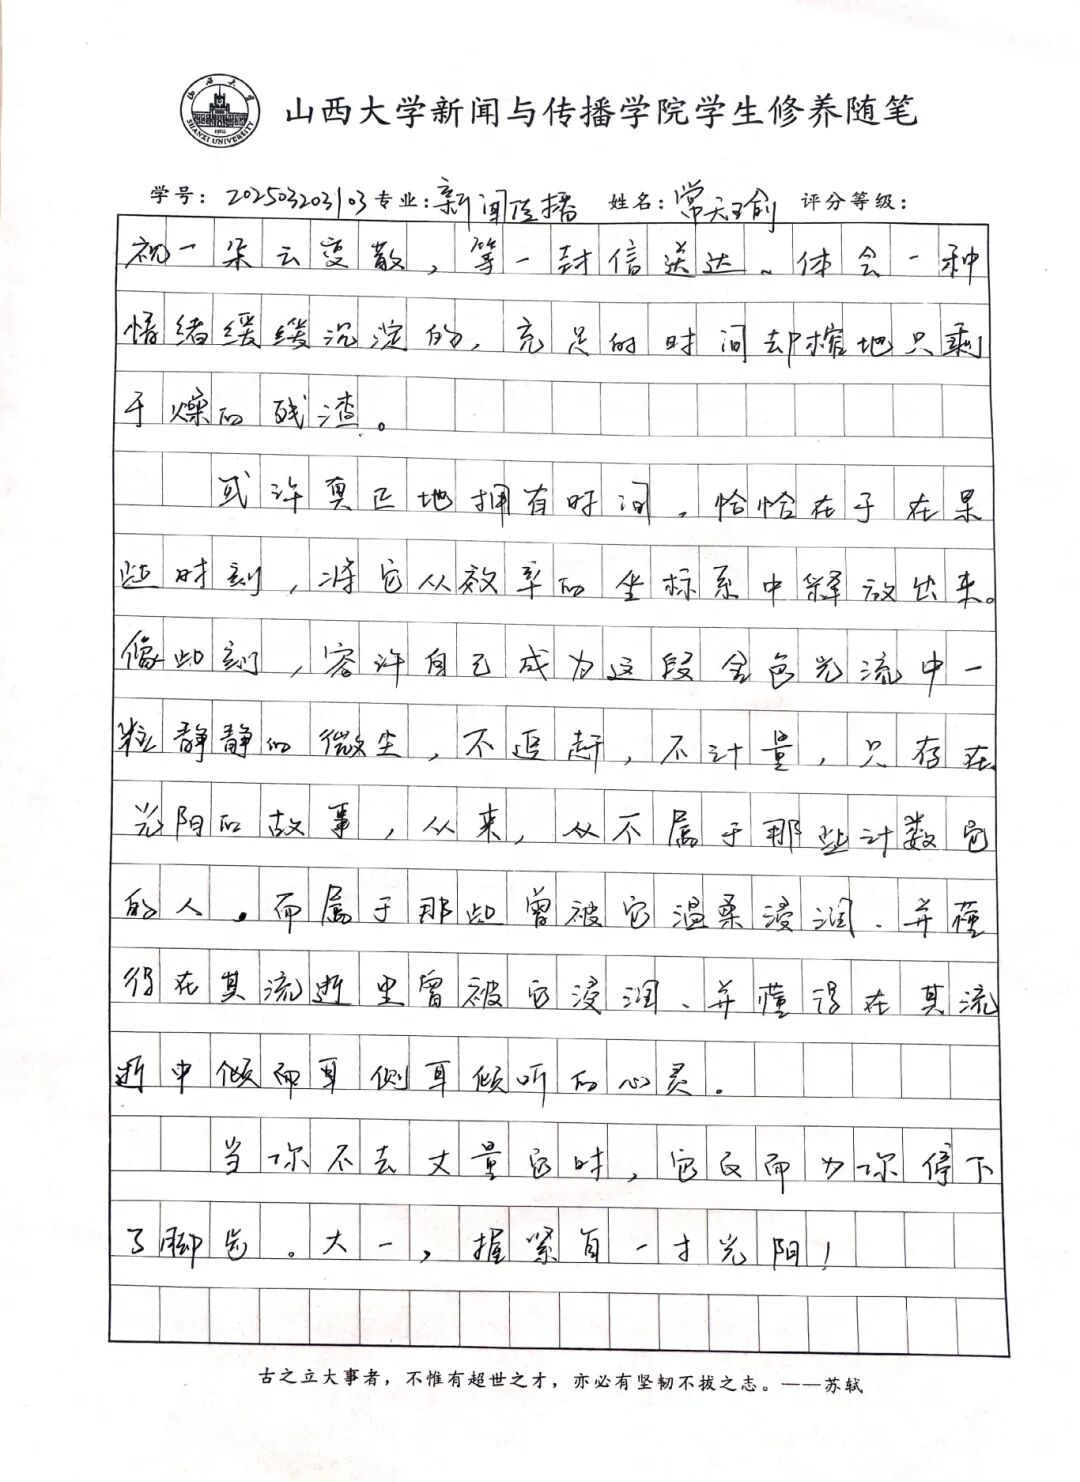 山西大学
SHANXI UNIVERSITY
1902
山西大学新闻与传播学院学生修养随笔
学号：202503203103 专业：新闻传播 姓名：常天 评分等级：
视一朵云变散，等一封信送达、体会一种
情绪缓缓沉淀的，充足的时间去榨地只剩
干燥的残渣。
或许真正地拥有时间，恰恰在于在某
些时刻，将它从效率的坐标系中释放出来。
像此刻，容许自己成为这段金色光流中一
粒静静的微尘，不追赶，不计量，只存在
光阴的故事，从来，从不属于那些计数它
的人。而属于那些曾被它温柔浸润、并懂
得在其流逝里曾被它浸润、并懂得在其流
逝中倾而耳侧耳倾听的心灵。
当你不去丈量它时，它反而为你停下
了脚步。大一，握紧每一寸光阴！
古之立大事者，不惟有超世之才，亦必有坚韧不拔之志。——苏轼